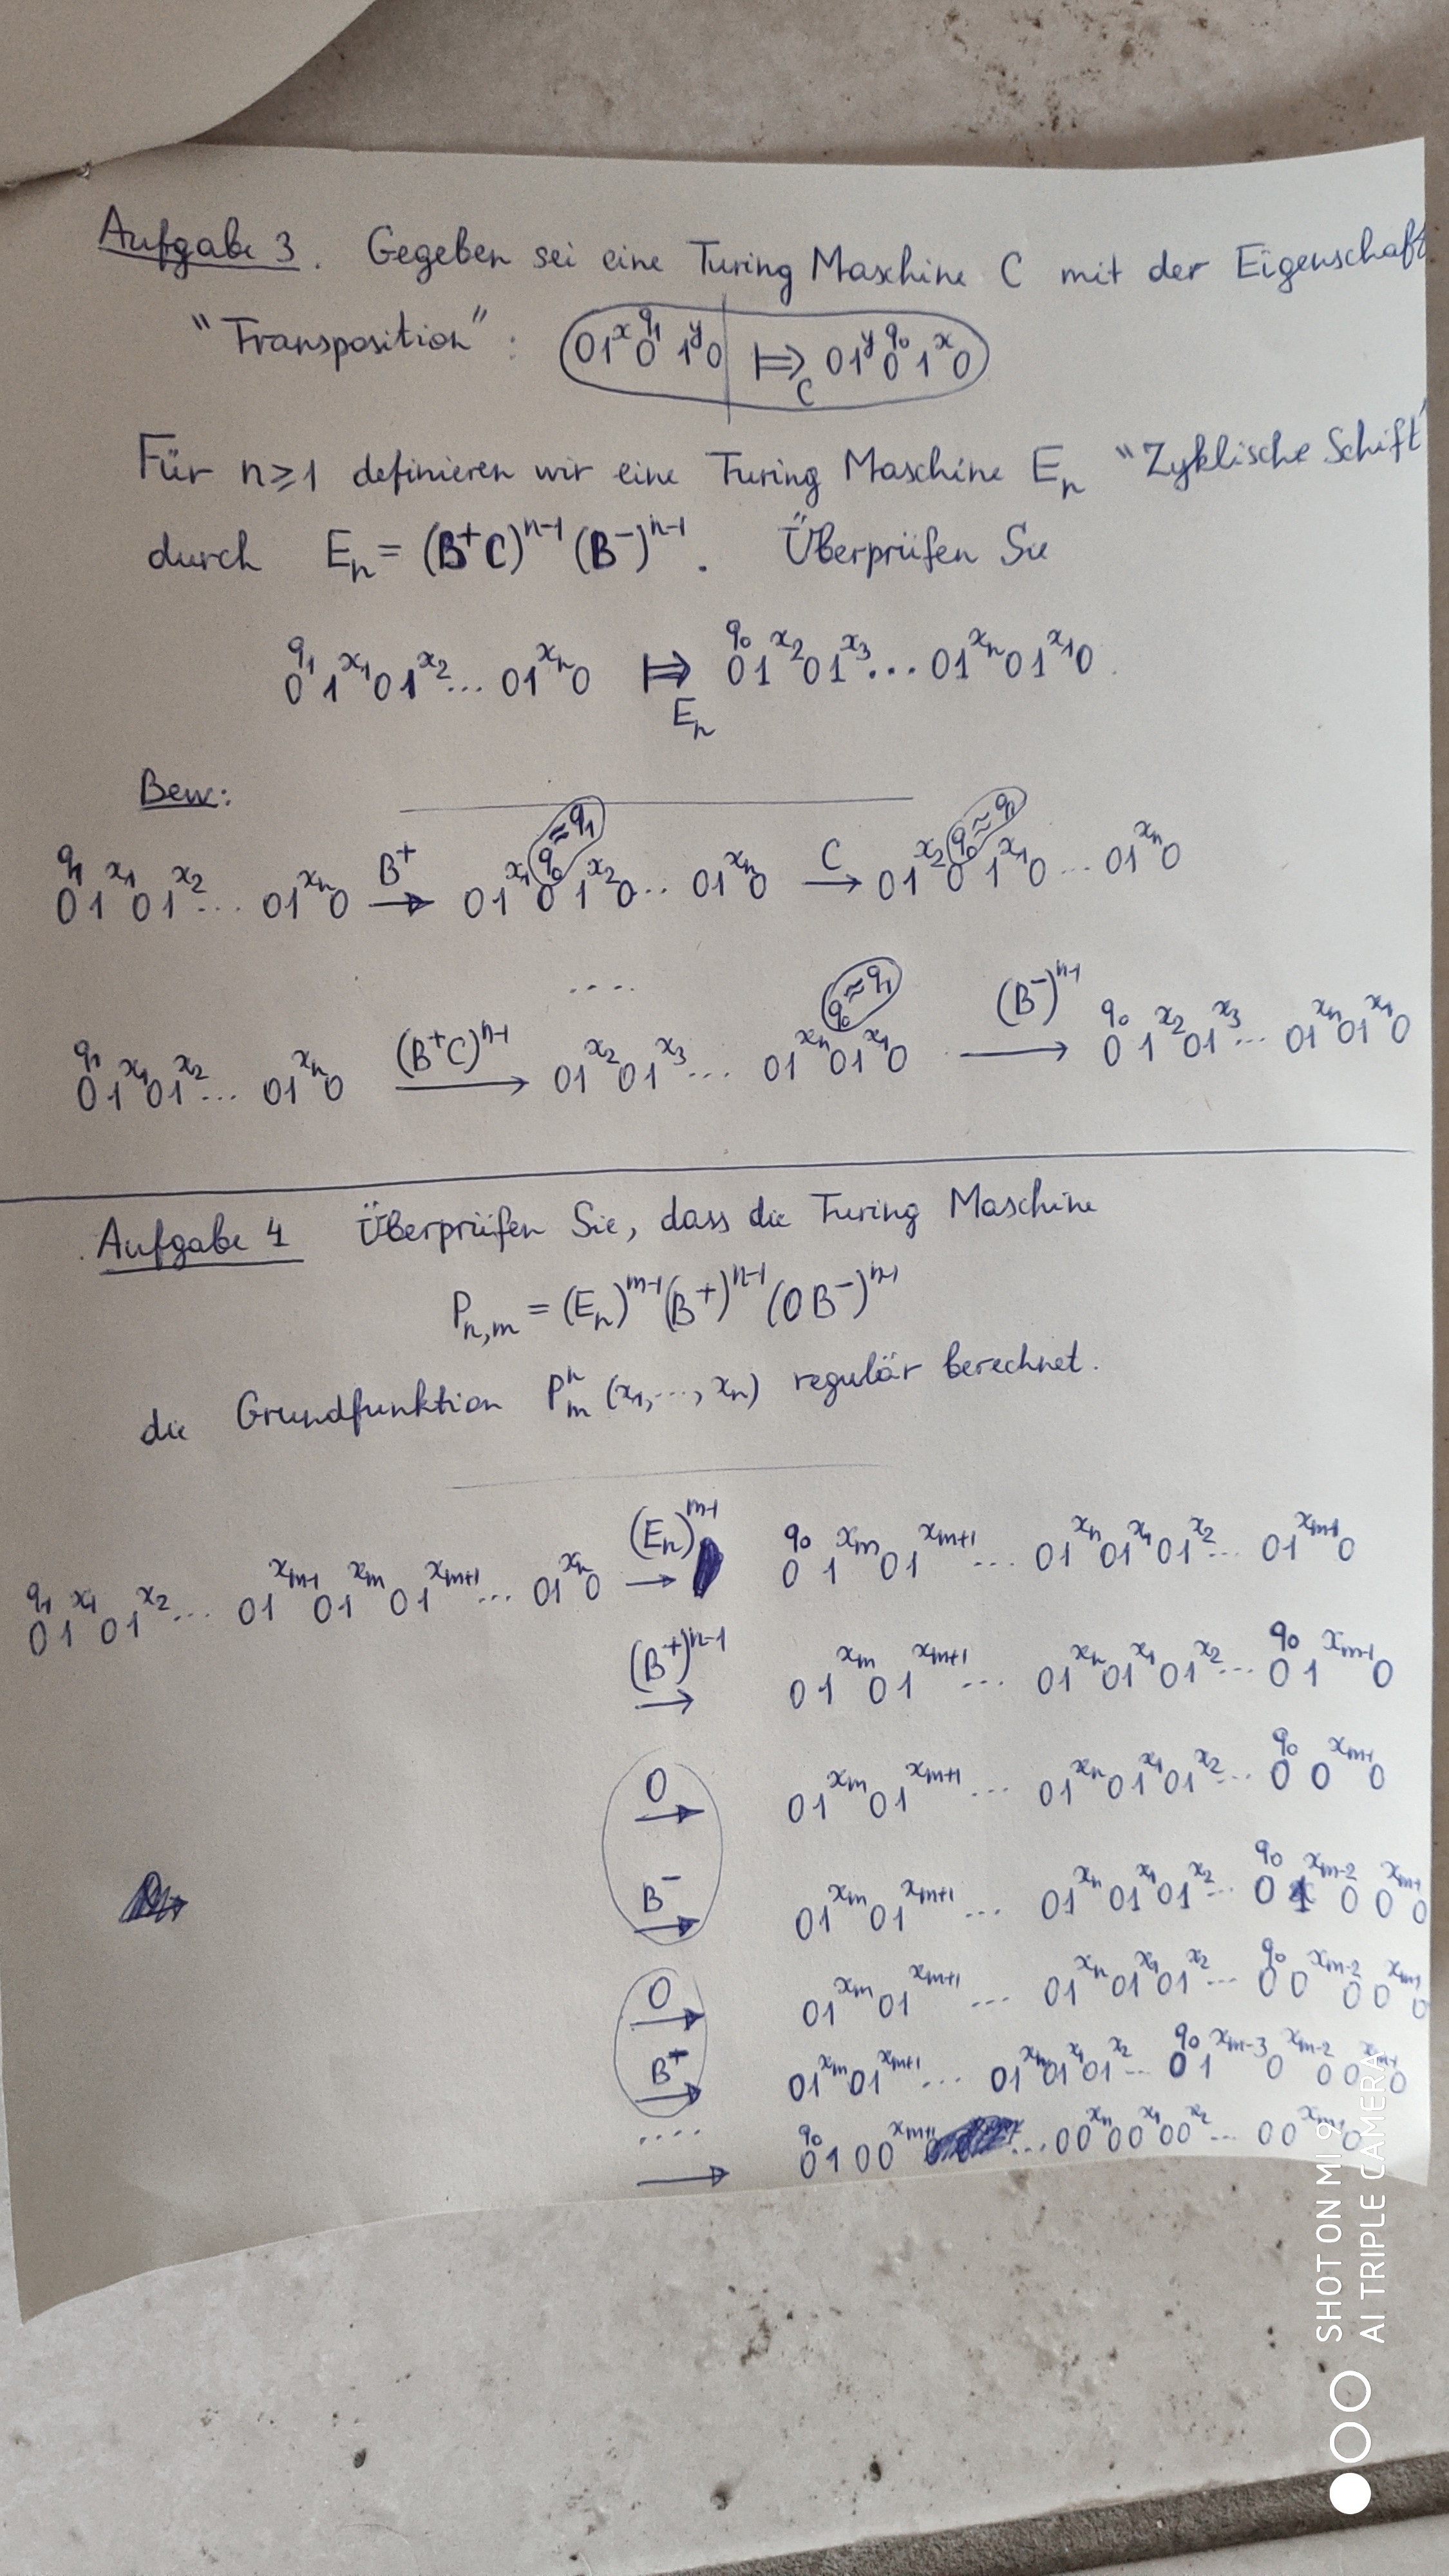 Aufgabe 3. Gegeben sei eine Turing Maschine C mit der Eigenschaft
"Transposition": 01^x 0^{q_1} 1^y 0 ⊨_C 01^y 0^{q_0} 1^x 0
Für n≥1 definieren wir eine Turing Maschine E_n "Zyklische Schift"
durch E_n = (B^+C)^{n-1} (B^-)^{n-1}. Überprüfen Sie
0^{q_1} 1^{x_1} 01^{x_2} ... 01^{x_n} 0 ⊨_{E_n} 0^{q_0} 1^{x_2} 01^{x_3} ... 01^{x_n} 01^{x_1} 0.
Bew:
0^{q_1} 1^{x_1} 01^{x_2} ... 01^{x_n} 0 →^{B^+} 01^{x_1} 0^{q_0≈q_1} 1^{x_2} 0 ... 01^{x_n} 0 →^{C} 01^{x_2} 0^{q_0≈q_1} 1^{x_1} 0 ... 01^{x_n} 0
....
0^{q_1} 1^{x_1} 01^{x_2} ... 01^{x_n} 0 →^{(B^+C)^{n-1}} 01^{x_2} 01^{x_3} ... 01^{x_n} 0^{q_0≈q_1} 1^{x_1} 0 →^{(B^-)^{n-1}} 0^{q_0} 1^{x_2} 01^{x_3} ... 01^{x_n} 01^{x_1} 0
Aufgabe 4 Überprüfen Sie, dass die Turing Maschine
P_{n,m} = (E_n)^{m-1} (B^+)^{n-1} (OB^-)^{n-1}
die Grundfunktion P_m^n (x_1, ..., x_n) regulär berechnet.
0^{q_1} 1^{x_1} 01^{x_2} ... 01^{x_{m-1}} 01^{x_m} 01^{x_{m+1}} ... 01^{x_n} 0 →^{(E_n)^{m-1}} 0^{q_0} 1^{x_m} 01^{x_{m+1}} ... 01^{x_n} 01^{x_1} 01^{x_2} ... 01^{x_{m-1}} 0
→^{(B^+)^{n-1}} 01^{x_m} 01^{x_{m+1}} ... 01^{x_n} 01^{x_1} 01^{x_2} ... 0^{q_0} 1^{x_{m-1}} 0
→^{O} 01^{x_m} 01^{x_{m+1}} ... 01^{x_n} 01^{x_1} 01^{x_2} ... 0^{q_0} 0^{x_{m-1}} 0
→^{B^-} 01^{x_m} 01^{x_{m+1}} ... 01^{x_n} 01^{x_1} 01^{x_2} ... 0^{q_0} 1^{x_{m-2}} 0 0^{x_{m-1}} 0
→^{O} 01^{x_m} 01^{x_{m+1}} ... 01^{x_n} 01^{x_1} 01^{x_2} ... 0^{q_0} 0^{x_{m-2}} 0 0^{x_{m-1}} 0
→^{B^+} 01^{x_m} 01^{x_{m+1}} ... 01^{x_n} 01^{x_1} 01^{x_2} ... 0^{q_0} 1^{x_{m-3}} 0^{x_{m-2}} 0 0^{x_{m-1}} 0
.... → 0^{q_0} 1 0 0^{x_{m+1}} ... 00^{x_n} 00^{x_1} 00^{x_2} ... 00^{x_{m-1}} 0
SHOT ON MI 9
AI TRIPLE CAMERA